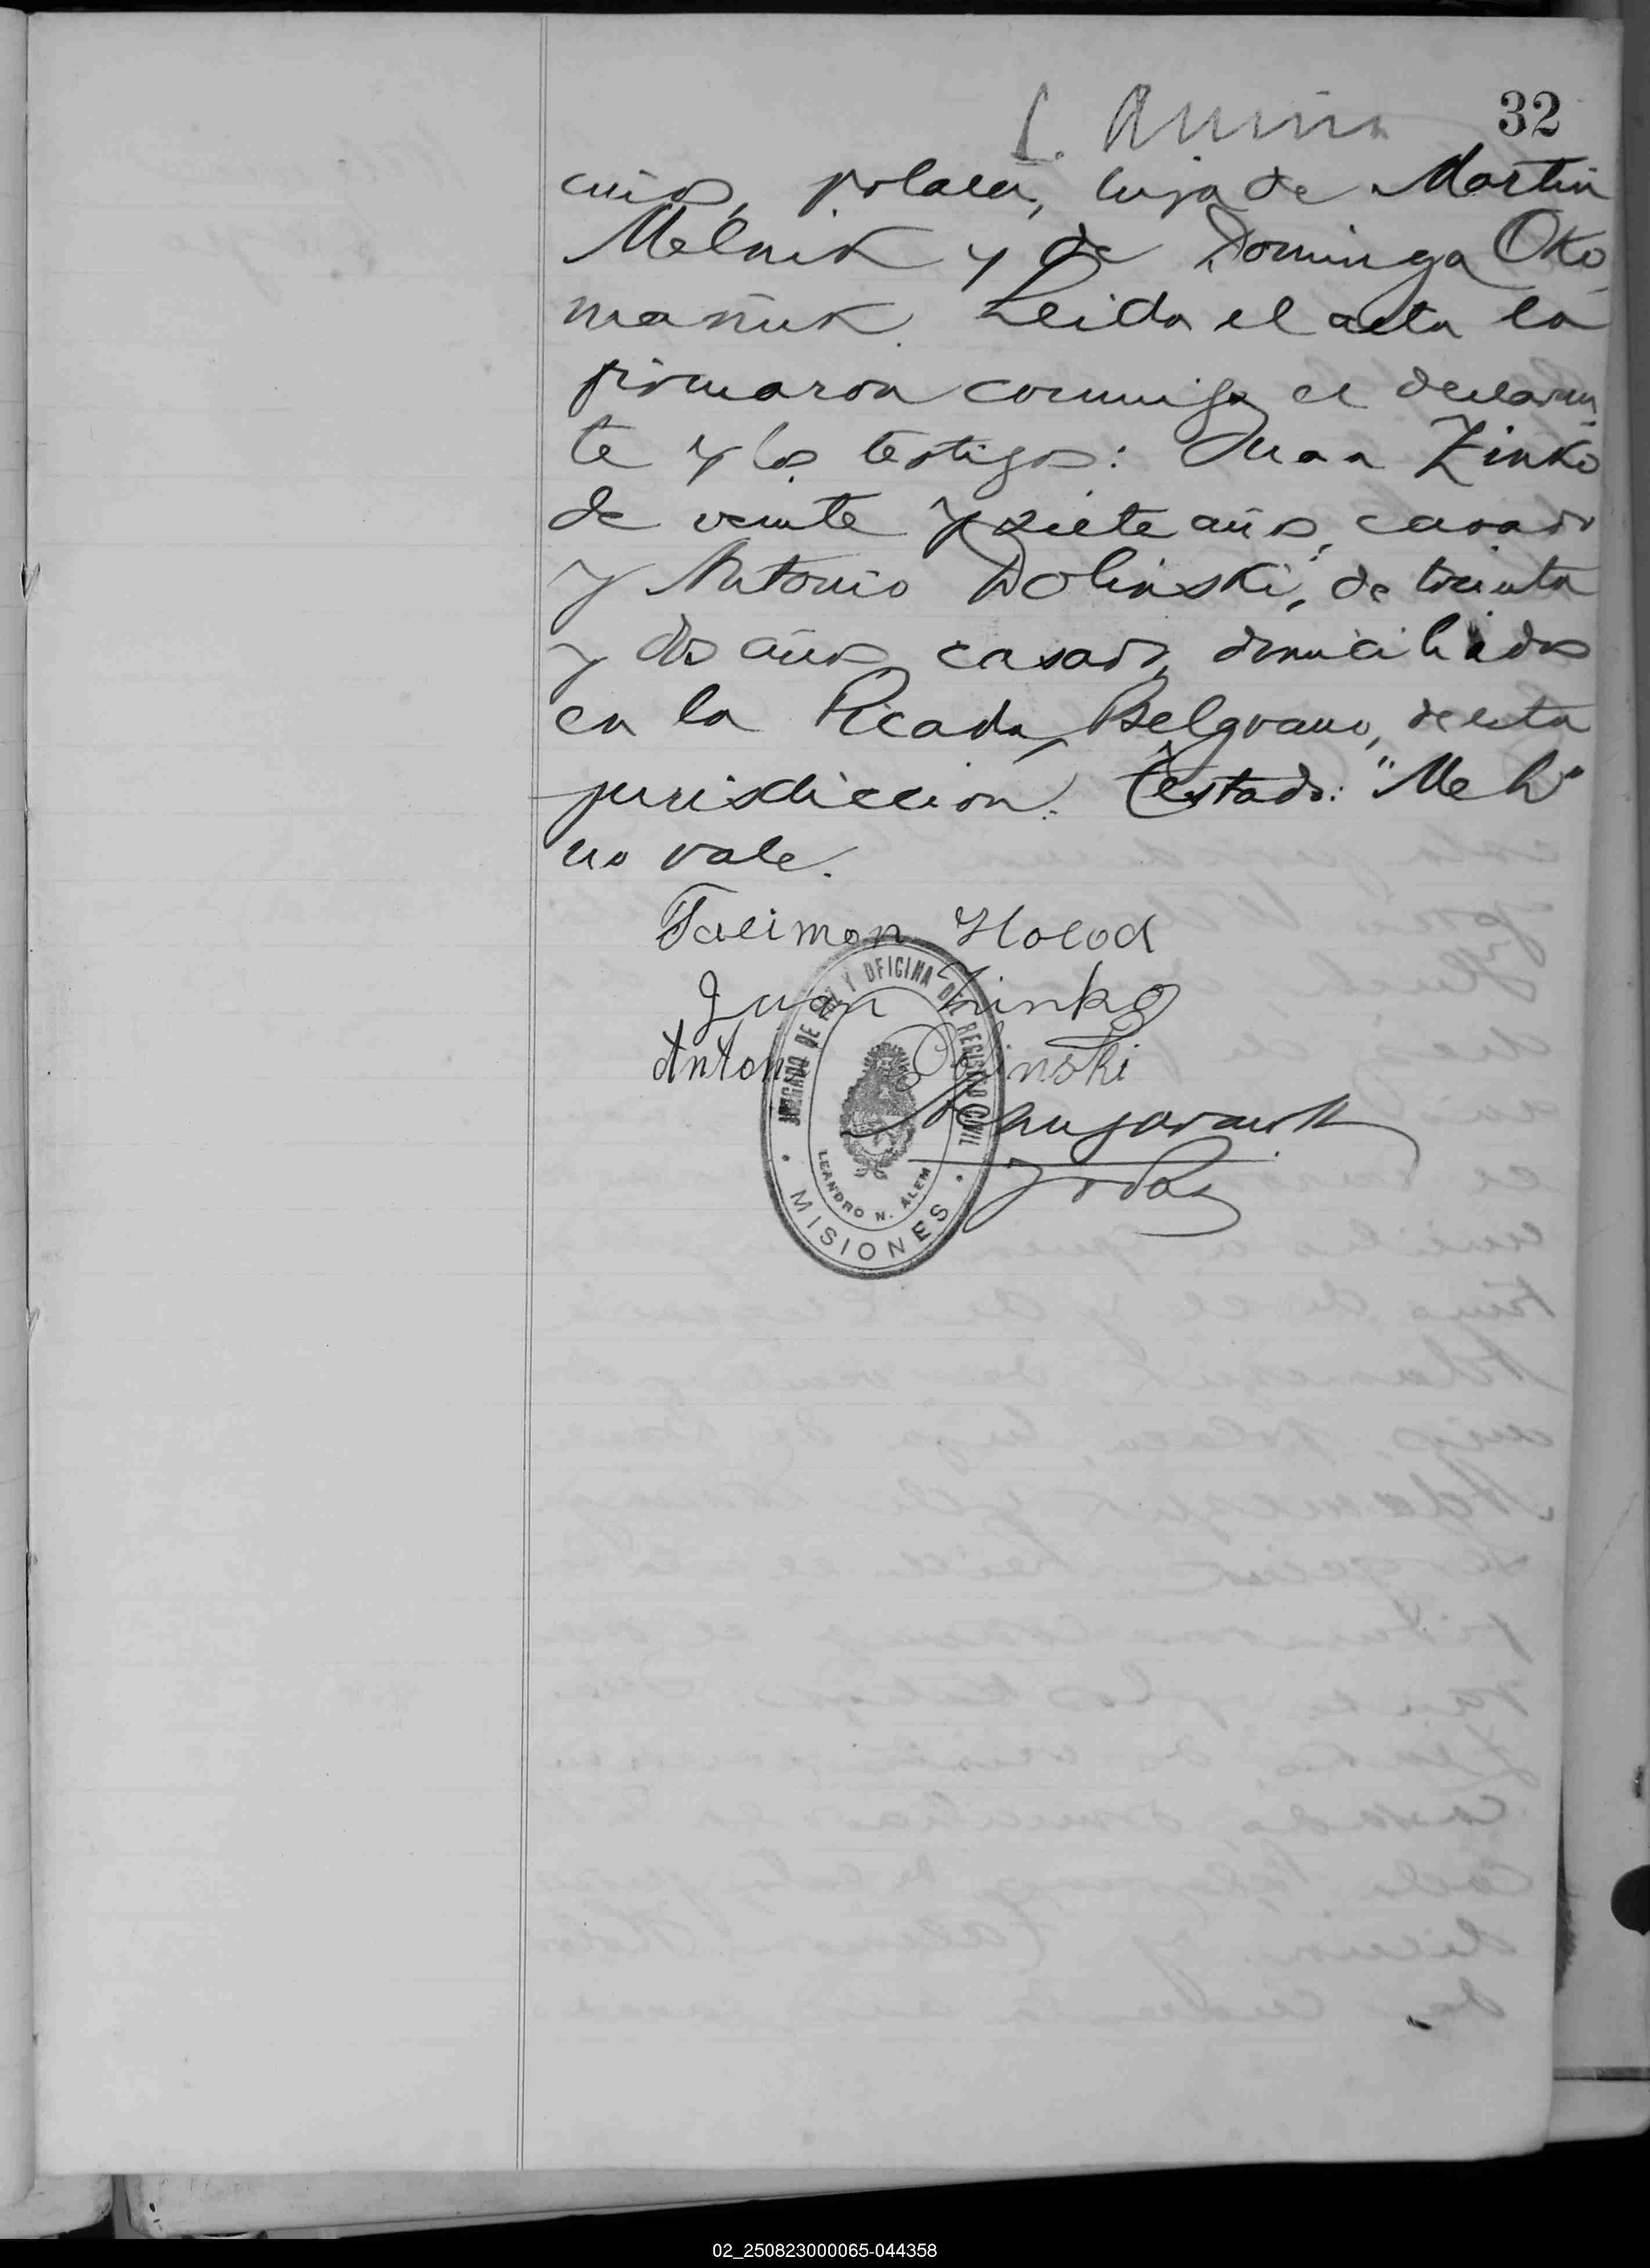 32
años, polaca, hija de Martin
Melnik y de Dominga Oko
mañuk. Leida el acta la
firmaron conmigo el declaran
te y los testigos: Juan Zinko
de veinte y siete años, casado
y Antonio Dolinski, de treinta
y dos años casado, domiciliados
en la Picada Belgrano, de esta
jurisdiccion. Testado: "Meh"
no vale.
Talimon Holod
Juan Zinko
Anton Dolinski
JUZGADO DE PAZ Y OFICINA DEL REGISTRO CIVIL
LEANDRO N. ALEM
MISIONES
02_250823000065-044358